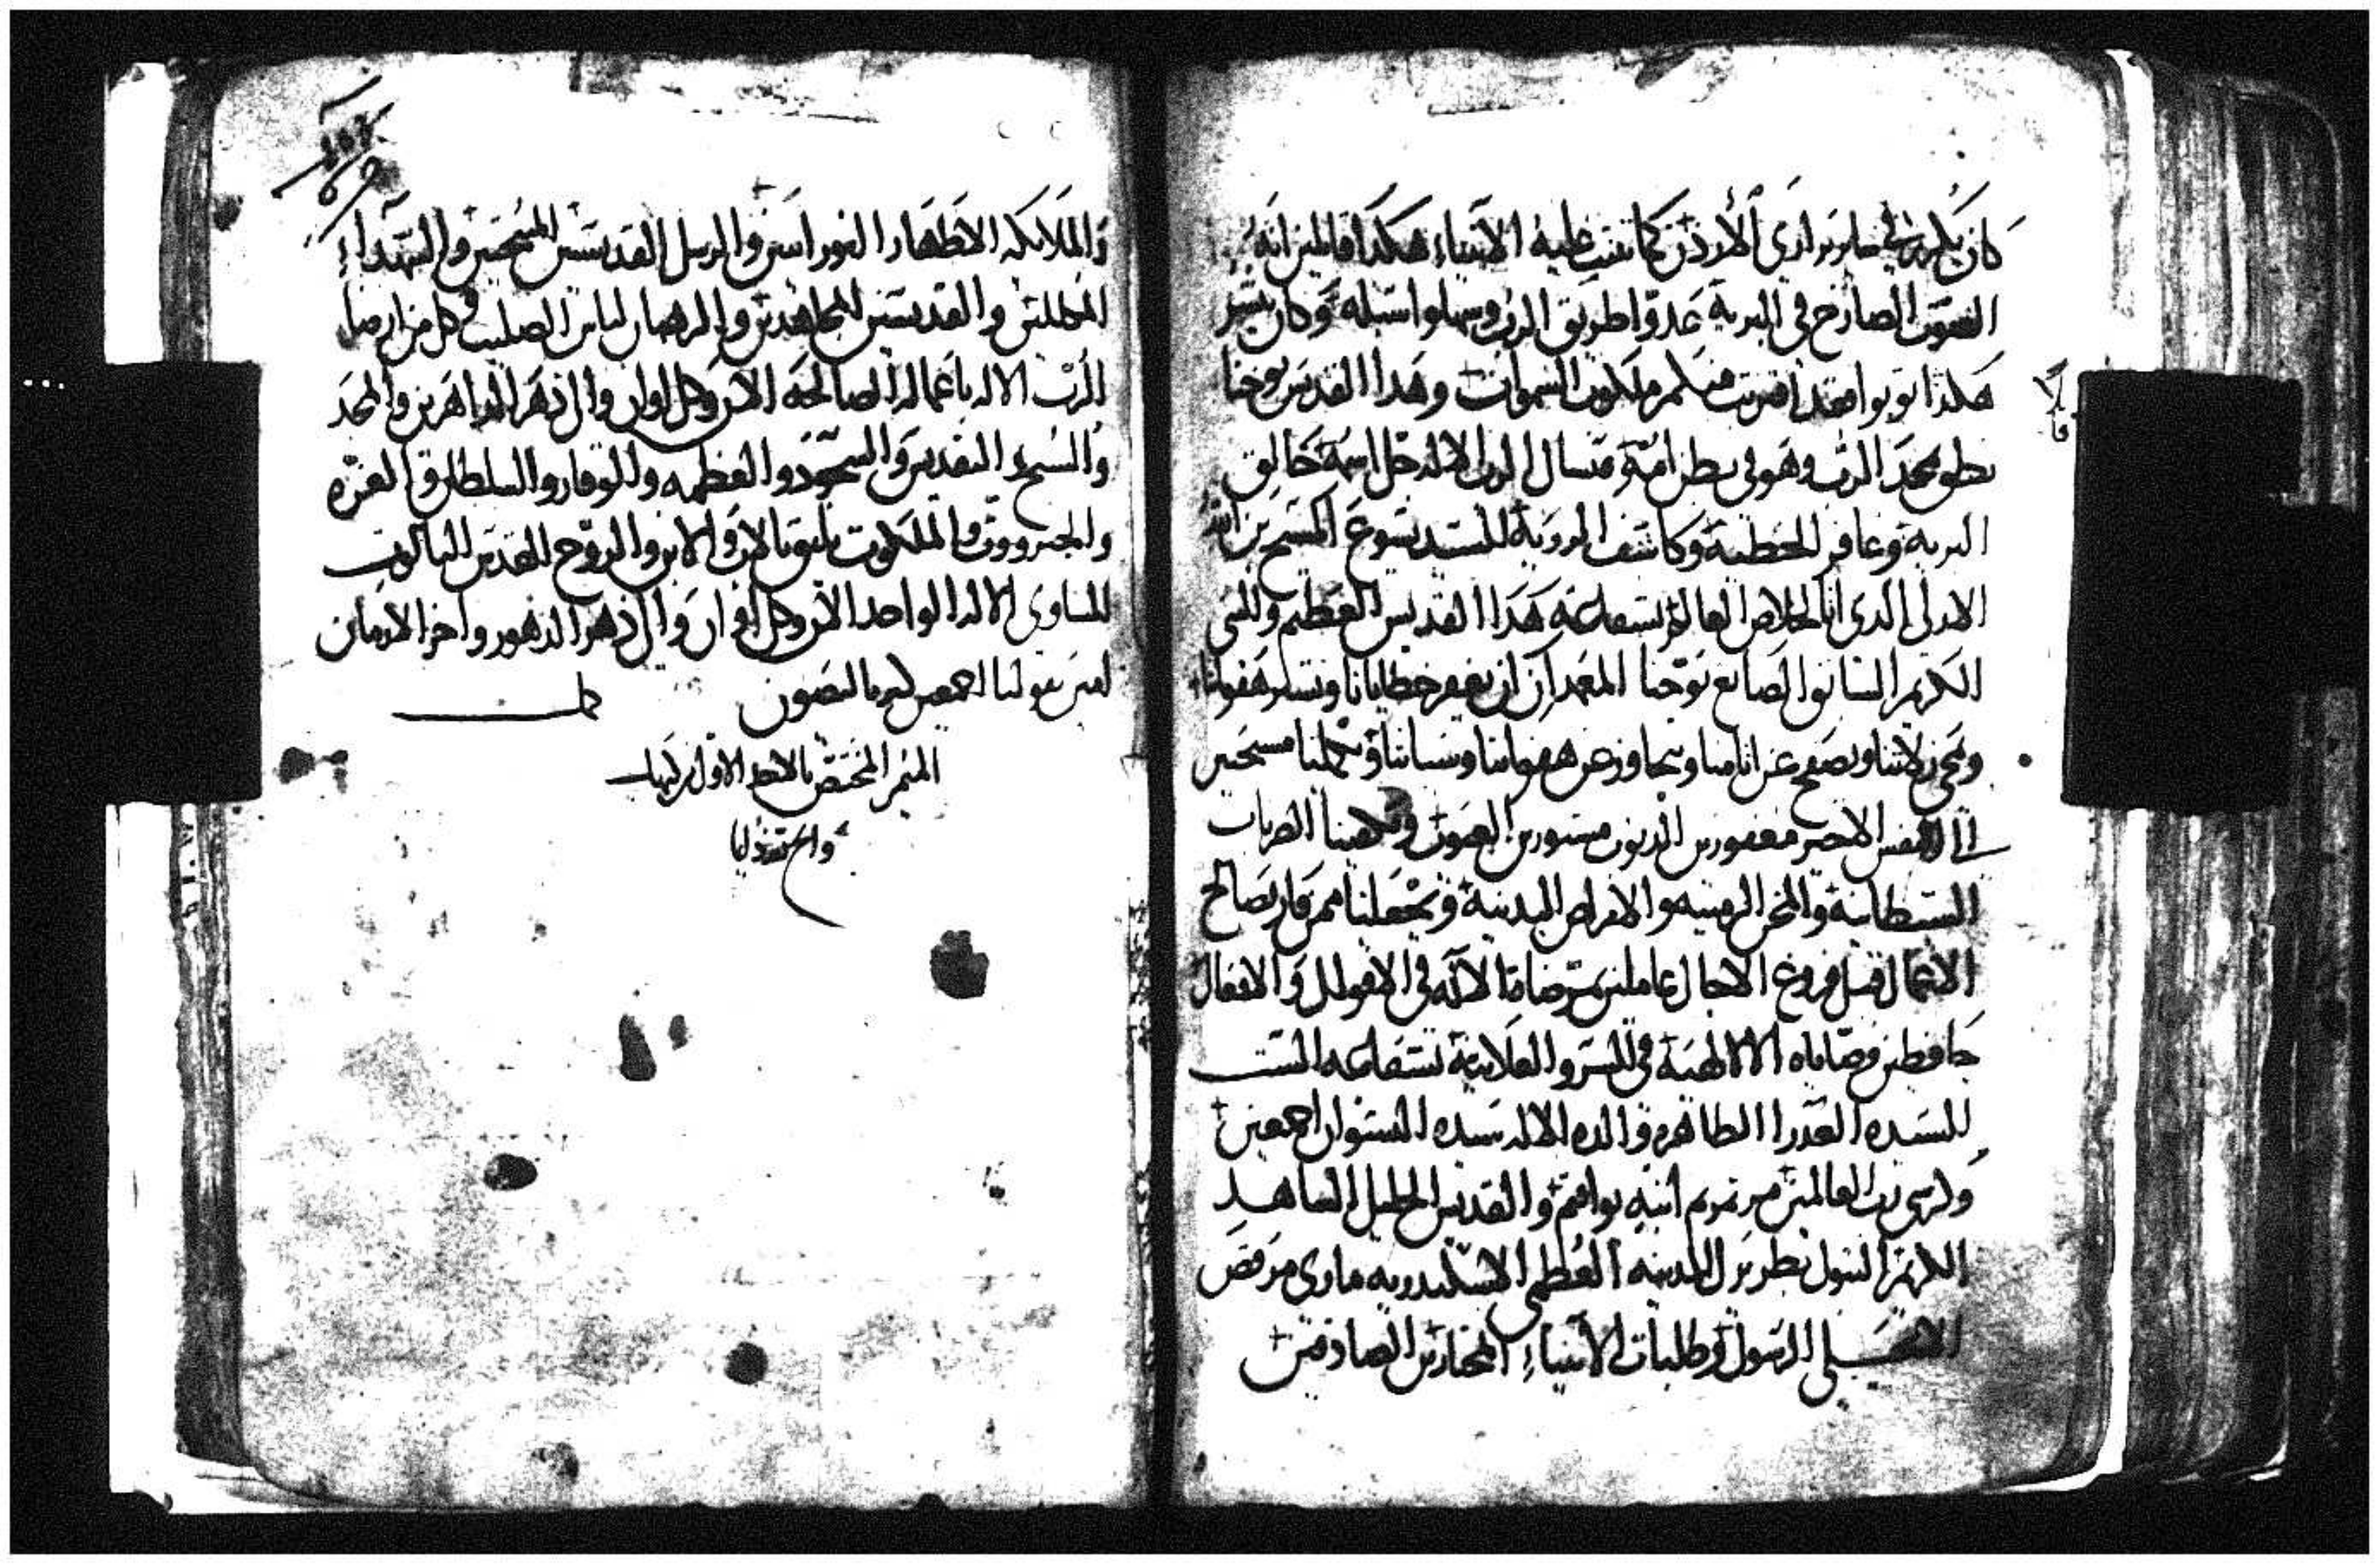 كان يكرز في سائر براري الأردن كما تنبت عليه الأنبياء هكذا قائلين انه
الصوت الصارخ في البرية عدوا طريق الرب وسهلوا سبله وكان يبشر
هكذا توبوا فقد اقتربت منكم ملكوت السموات وهذا القديس يوحنا
قا
نطق بمجد الرب وهو في بطن امه فنسال الرب الاله جل اسمه خالق
البرية وغافر الخطية وكاشف الروية للسيد يسوع المسيح بن الله
الازلي الذي اتا لخلاص العالم بشفاعة هذا القديس العظيم والنبي
الكريم السابق الصابغ يوحنا المعمدان ان يغفر خطايانا ويستر هفواتنا
ويمحي زلاتنا ويصفح عن اثامنا ويتجاوز عن هفواتنا وسياتنا ويجعلنا مسيحيين
الى النفس الاخير مغفورين الذنوب مستورين العيوب ويكفينا الضربات
الشيطانية والمحن الزمنية والامراض البدنية ويجعلنا ممن فاز بصالح
الاعمال قبل فروغ الاجال عاملين بمرضاة الاله في الاقوال والافعال
حافظين وصاياه الالهية في السر والعلانية بشفاعة الست
السيده العدرا الطاهره والدة الاله سيدة النسوان اجمعين
وكرسي رب العالمين مرتمريم ابنة يواقيم والقديس الجليل الشاهد
الكريم البتول بطريرك المدينه العظمى الاسكندريه ماري مرقص
الانجيلي الرسول وطلبات الأنبياء المختارين الصادقين
والملائكه الاطهار النورانيين والرسل القديسين المنتخبين والشهداء
المكللين والقديسين المجاهدين والرهبان لباس الصليب وكل من ارضا
الرب الاله باعماله الصالحه الان وكل اوان والى دهر الداهرين والمجد
والتسبيح والتقديس والسجود والعظمه والوقار والسلطان والعزه
والجبروت والملكوت يليق بالاب والابن والروح القدس الثالوث
المساوي الاله الواحد الان وكل اوان والى دهر الدهور واخر الازمان
امين نقولنا اجمعين كيرياليصون
الميمر المختص بالاحد الاول من كيهك